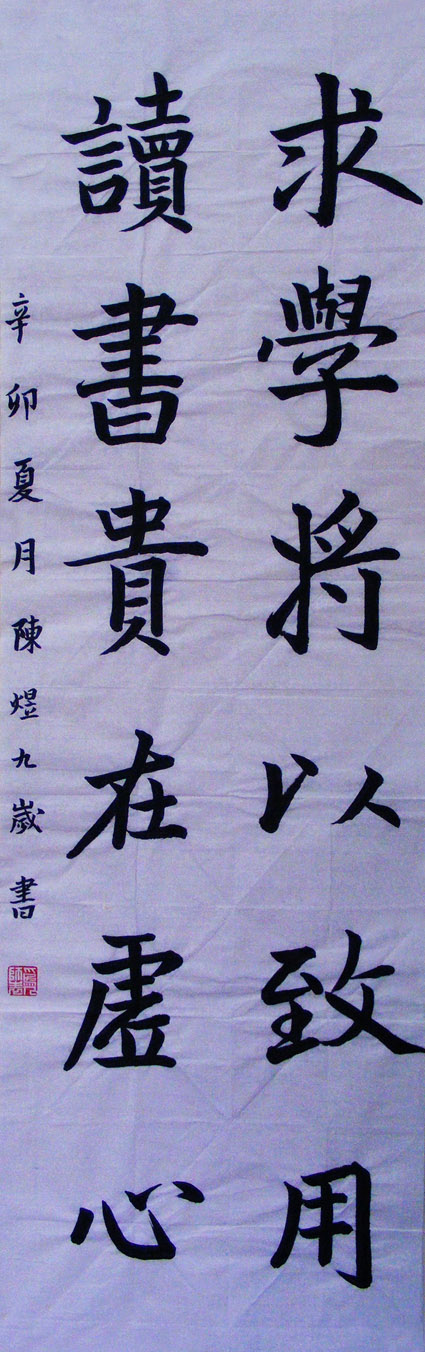 求學將以致用
讀書貴在虛心
辛卯夏月陳煜九歲書